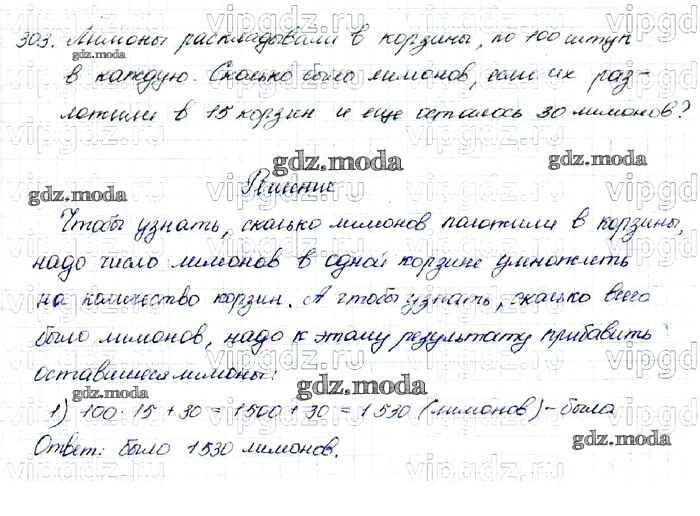 303. Лимоны раскладывали в корзины, по 100 штук
в каждую. Сколько было лимонов, если их раз-
ложили в 15 корзин и еще осталось 30 лимонов?
Решение
Чтобы узнать, сколько лимонов положили в корзины,
надо число лимонов в одной корзине умножить
на количество корзин. А чтобы узнать, сколько всего
было лимонов, надо к этому результату прибавить
оставшиеся лимоны:
1) 100 · 15 + 30 = 1500 + 30 = 1530 (лимонов) - была
Ответ: было 1530 лимонов.
gdz.moda
gdz.moda
gdz.moda
gdz.moda
gdz.moda
gdz.moda
gdz.moda
vipgdz.ru